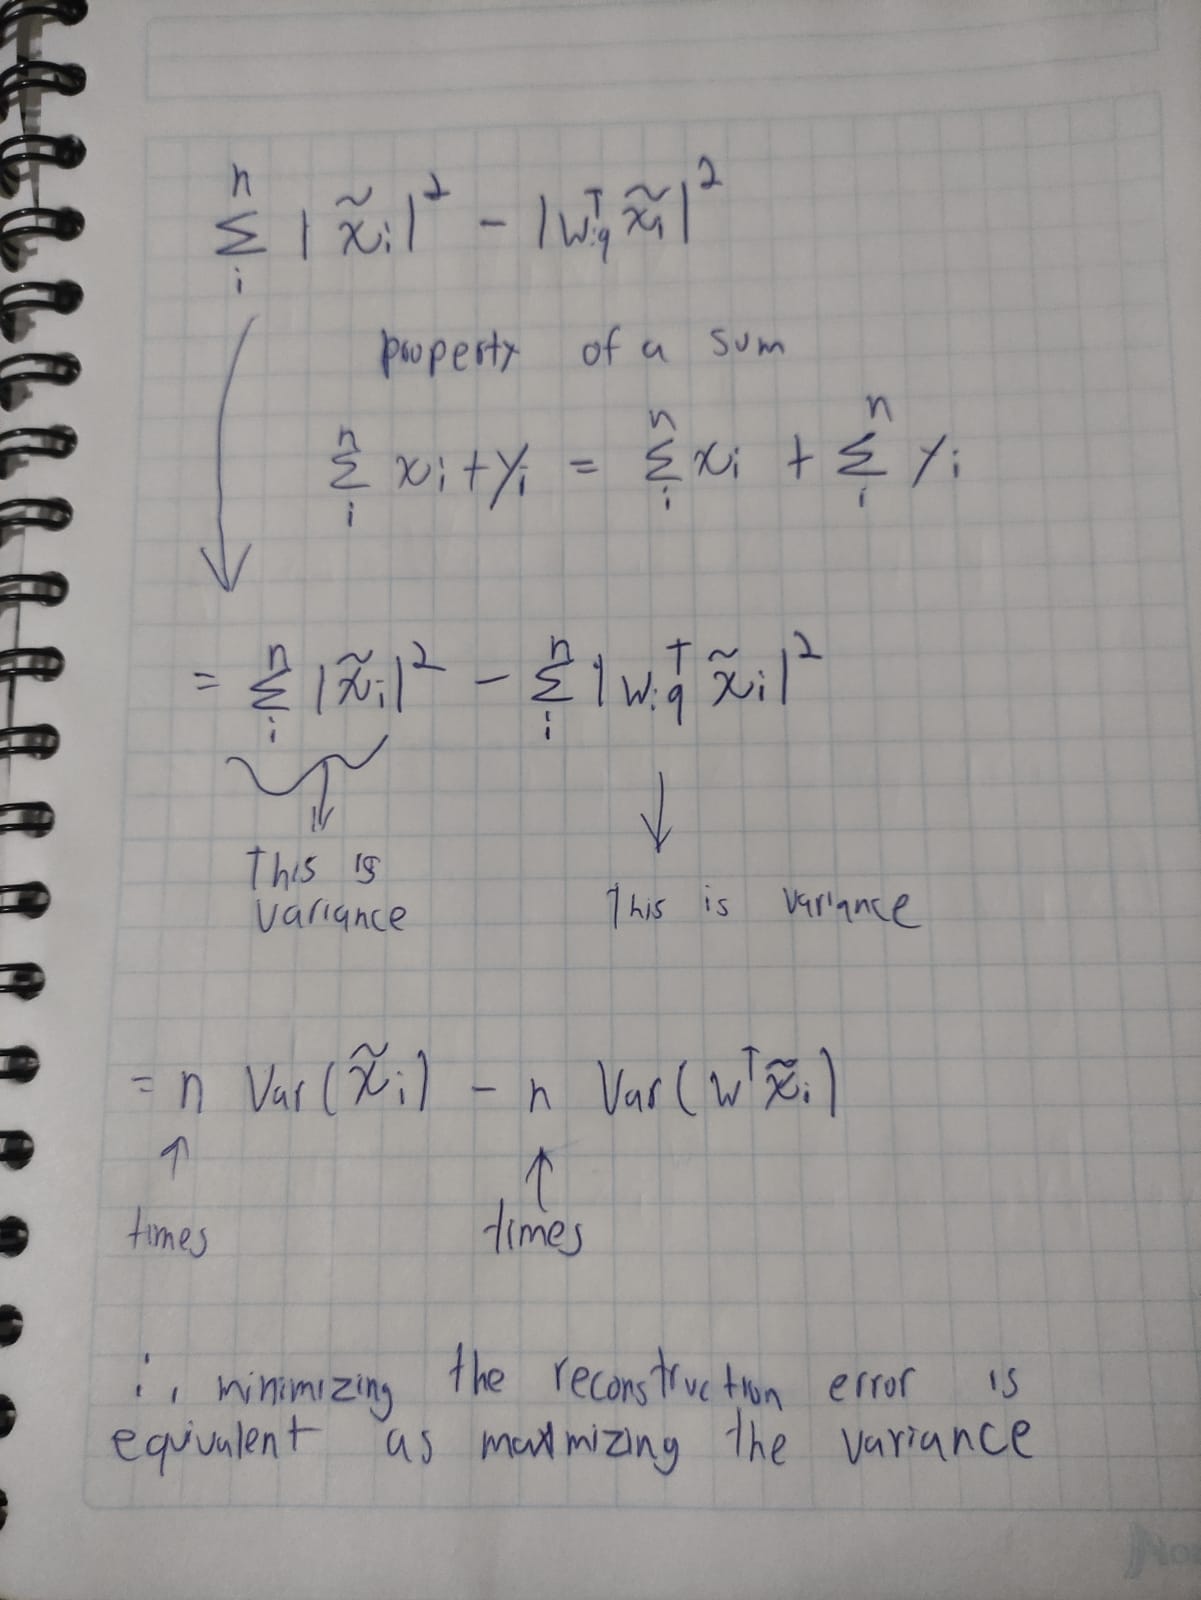 n
Σ |x̃ᵢ|² - |w:qᵀ x̃ᵢ|²
i
property of a sum
n n n
Σ xᵢ+yᵢ = Σ xᵢ + Σ yᵢ
i i i
n n
= Σ |x̃ᵢ|² - Σ |w:qᵀ x̃ᵢ|²
i i
This is
variance
This is variance
= n Var(x̃ᵢ) - n Var(wᵀx̃ᵢ)
times times
minimizing the reconstruction error is
equivalent as maximizing the variance